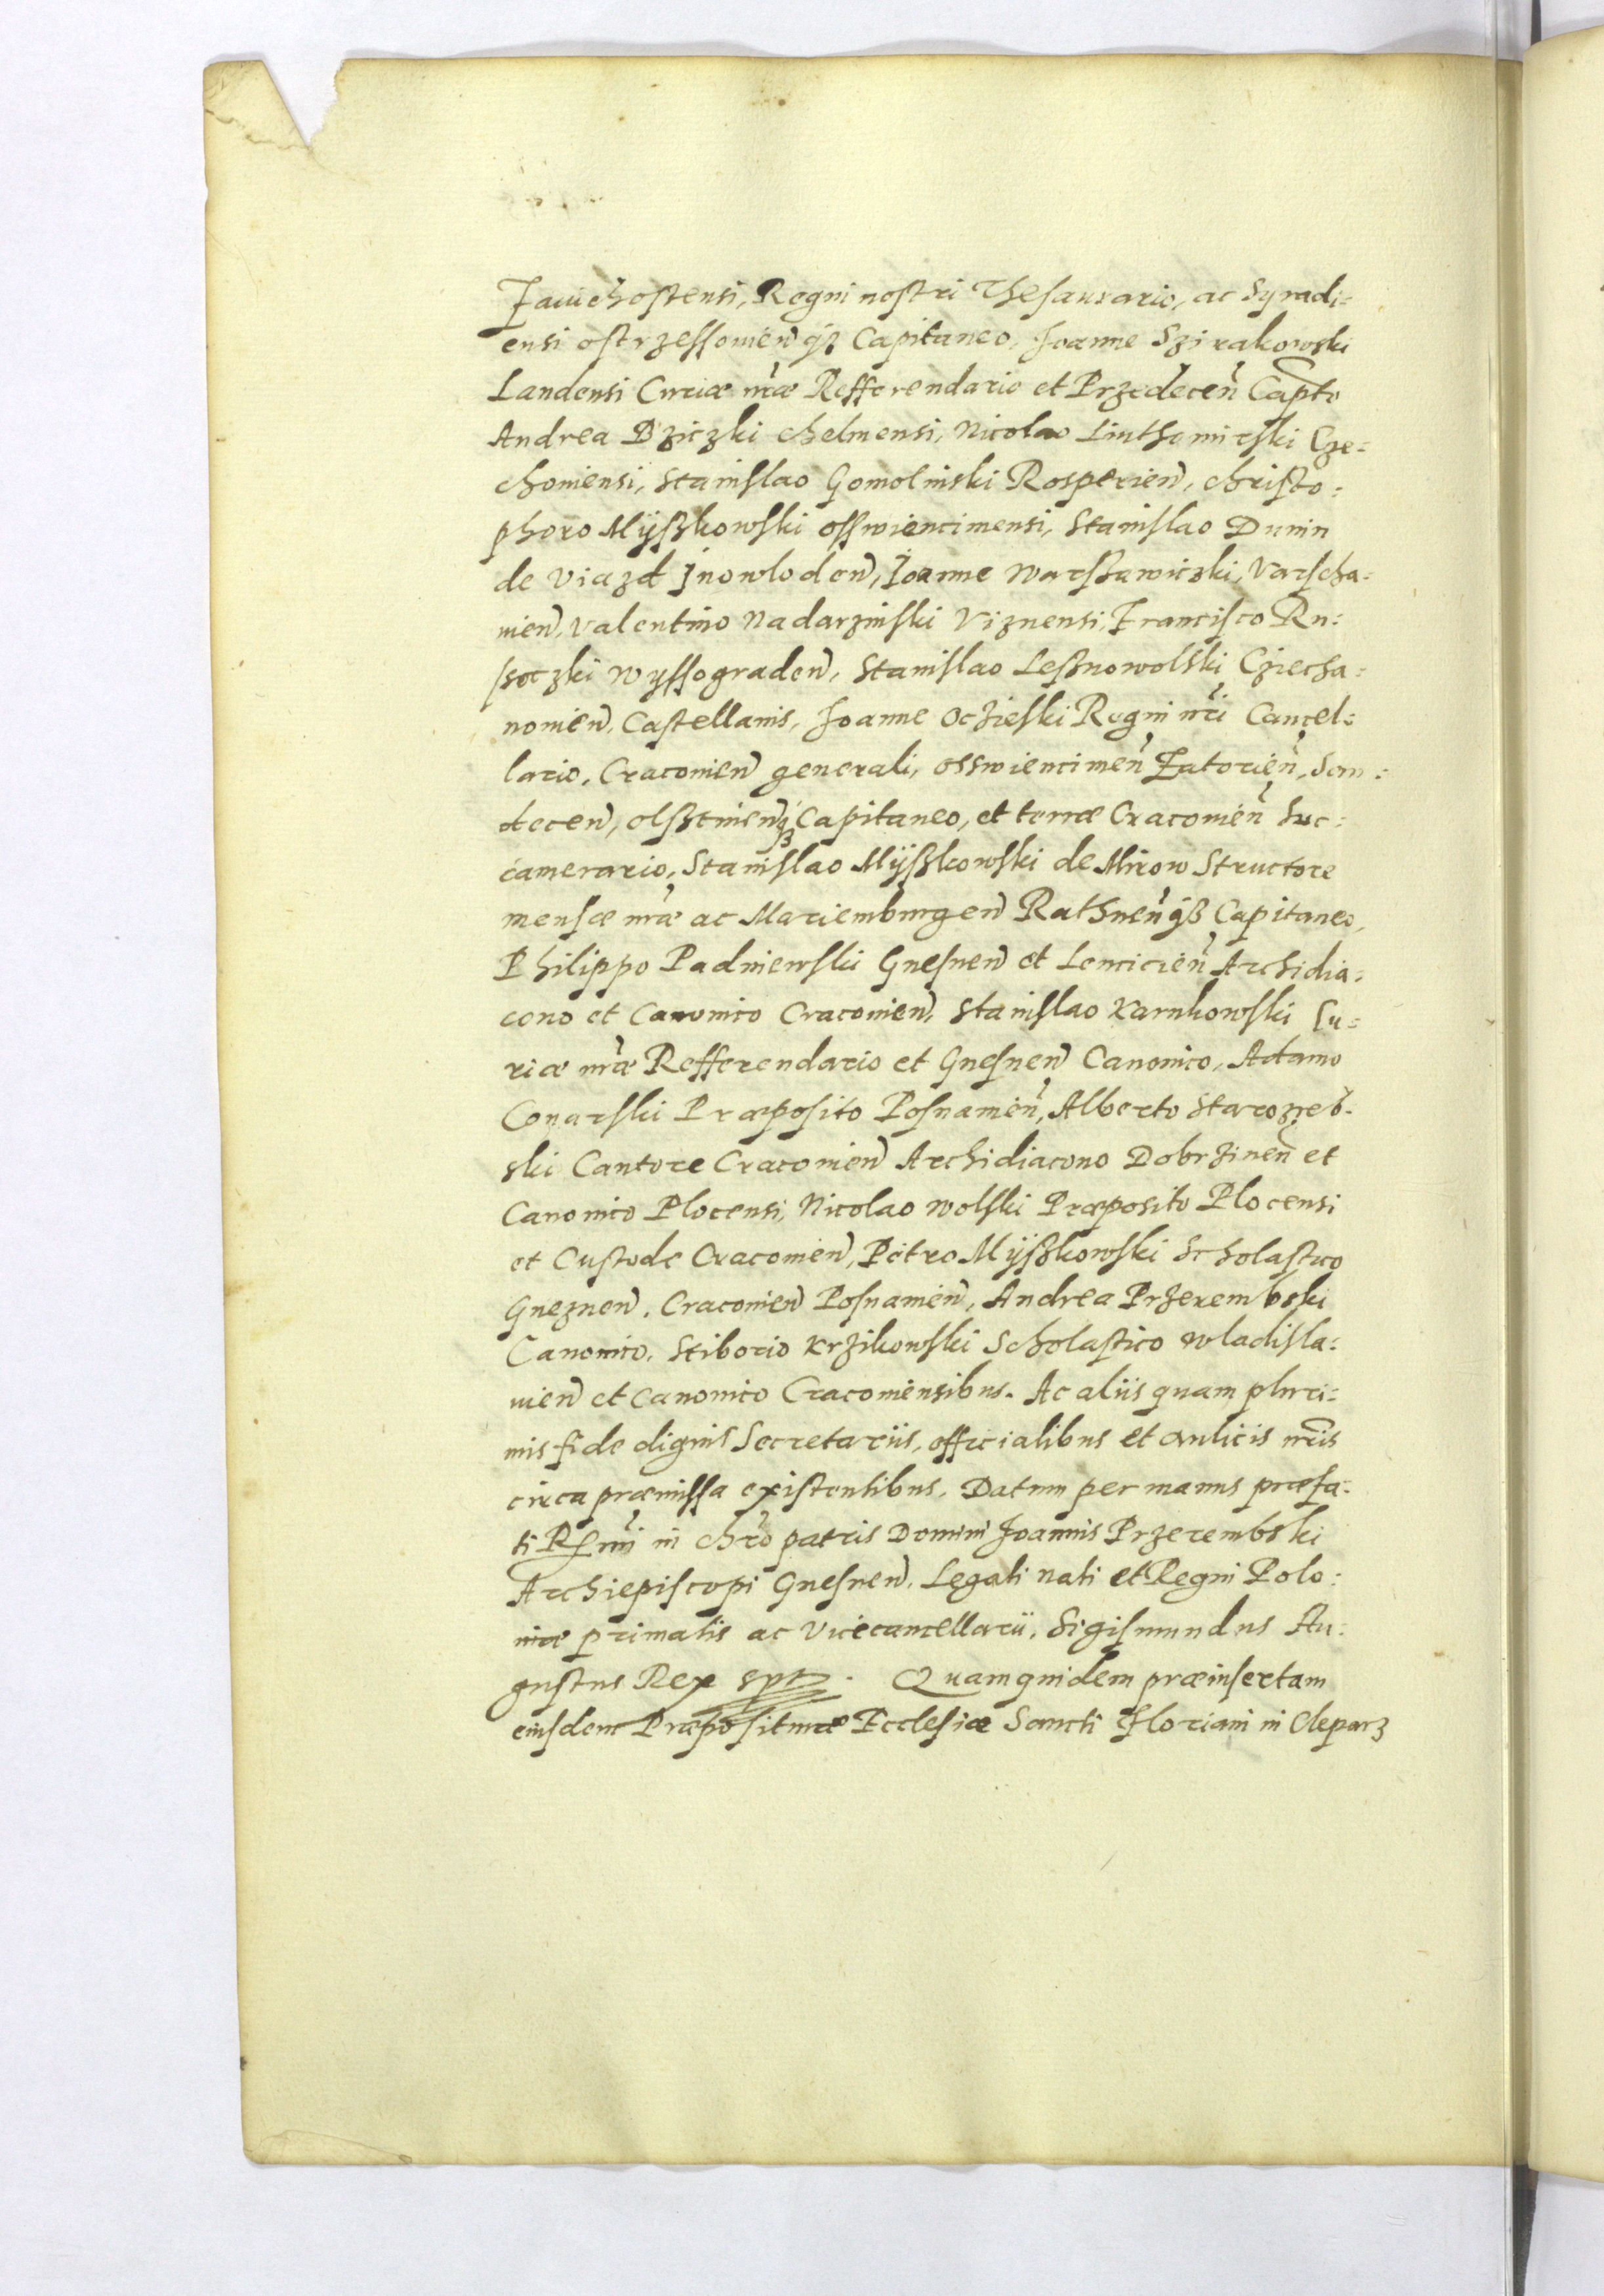 Zauichostensi, Regni nostri Thesaurario, ac Syradi=
ensi ostrzessouien̄ qꝫ Capitaneo, Joanne Szirakowski
Landensi Curiæ nr̃æ Refferendario et Przedecen̄ Capto
Andrea Dziczki Chelmensi, Nicolao Liuthomirski Cze=
choniensi, Stanislao Gomolinski Rosperien̄, Christo=
phoro Mÿszkowski ossiwiencimensi, Stanislao Dunin
de Viazd Jnowloden̄, Joanne Warszawiczki, Varscha=
uien̄, Valentino Nadarzinski Viznensi, Francisco Ru=
soczki Wyssograden̄, Stanislao Lesznowolski Cziecha=
nouien̄, Castellanis, Joanne Oczieski Regni nr̃i Cancel=
lario, Cracouien̄ generali, osswiencimen̄ Zatorien̄, San=
decen̄, olsztinen̄ qꝫ Capitaneo, et terræ Cracouien̄ Suc=
camerario, Stanislao Mÿszkowski de Mirow Structore
mensæ nr̃æ ac Mariemburgen̄ Rathnen̄ qꝫ Capitaneo,
Philippo Padniewski Gnesnen̄ et Lencicien̄ Archidia=
cono et Canonico Cracouien̄, Stanislao Karnkowski Cu=
riæ nr̃æ Refferendario et Gnesnen̄ Canonico, Adamo
Conarski Præposito Posnanien̄, Alberto Starozreb=
ski Cantore Cracouien̄ Archidiacono Dobrzinen̄ et
Canonico Plocensi, Nicolao Wolski Præposito Plocensi
et Custode Cracouien̄, Petro Mÿszkowski Scholastico
Gneznen̄, Cracouien̄ Posnanien̄, Andrea Przerembski
Canonico, Stiborio Krzikowski Scholastico Wladisla=
uien̄ et Canonico Cracouiensibus. Ac aliis quam pluri=
mis fide dignis Secretariis, officialibus et aulicis nr̃is
circa præmissa existentibus. Datum per manus præfa=
ti R̃mi in Chr̃o patris Domini Joannis Przerembski
Archiepiscopi Gnesnen̄, Legati nati et Regni Polo=
niæ primatis ac Vicecancellarii. Sigismundus Au=
gustus Rex sp̃t. Quamquidem præinsertam
eiusdem Præposituræ Ecclesiæ Sancti Floriani in Cleparz